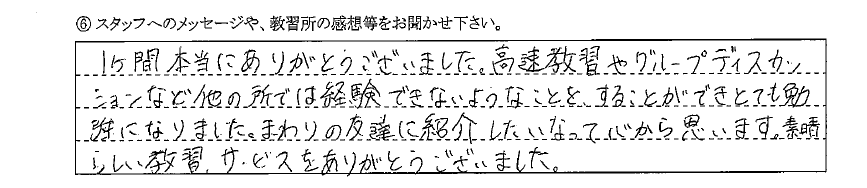 ⑥ スタッフへのメッセージや、教習所の感想等をお聞かせ下さい。
1ヶ間本当にありがとうございました。高速教習やグループディスカッ
ションなど他の所では経験できないようなことを、することができとても勉
強になりました。まわりの友達に紹介したいなって心から思います。素晴
らしい教習、サービスをありがとうございました。